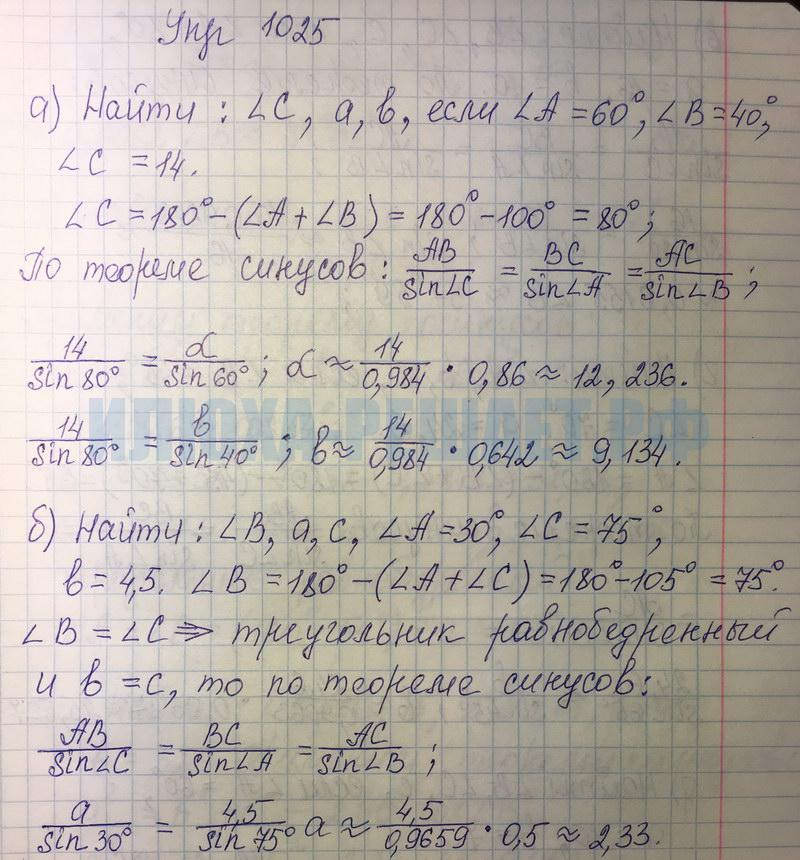 Упр 1025
а) Найти : ∠C, a, в, если ∠A = 60°, ∠B = 40°,
∠C = 14.
∠C = 180° - (∠A + ∠B) = 180° - 100° = 80° ;
По теореме синусов : AB/sin∠C = BC/sin∠A = AC/sin∠B ;
14/sin 80° = a/sin 60° ; a ≈ 14/0,984 · 0,86 ≈ 12, 236.
ИЛЮХА-РЕШАЕТ.РФ
14/sin 80° = в/sin 40° ; в ≈ 14/0,984 · 0,642 ≈ 9,134.
б) Найти : ∠B, a, c, ∠A = 30°, ∠C = 75°,
в = 4,5. ∠B = 180° - (∠A + ∠C) = 180° - 105° = 75°.
∠B = ∠C ⇒ треугольник равнобедренный
и в = c, то по теореме синусов :
AB/sin∠C = BC/sin∠A = AC/sin∠B ;
a/sin 30° = 4,5/sin 75° a ≈ 4,5/0,9659 · 0,5 ≈ 2,33.